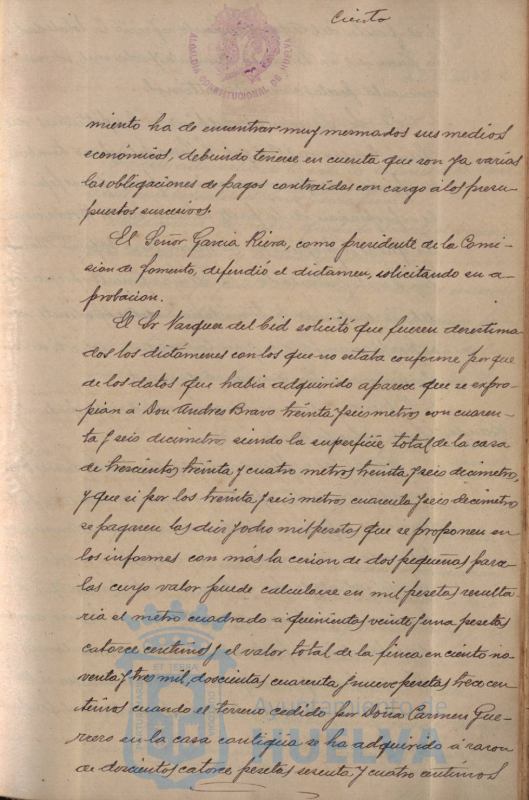 Ciento
ALCALDIA CONSTITUCIONAL DE HUELVA
miento ha de encontrar muy mermados sus medios
económicos, debiendo tenerse en cuenta que son ya varias
las obligaciones de pagos contraidas con cargo á los presu
puestos sucesivos.
El Señor Garcia Riera, como presidente de la Comi-
sion de fomento, defendió el dictámen, solicitando su a-
probacion.
El Sr Vazquez del Cid solicitó que fueren desestima
dos los dictámenes con los que no estaba conforme por que
de los datos que habia adquirido aparece que se expro-
pian á Don Andres Bravo treinta y seis metros con cuaren-
ta y seis decimetros siendo la superficie total de la casa
de trescientos treinta y cuatro metros treinta y seis decimetros,
y que si por los treinta y seis metros cuarenta y seis decimetros
se pagaren las diez y ocho mil pesetas que se proponen en
los informes con más la cesion de dos pequeñas parce-
las cuyo valor puede calcularse en mil pesetas resulta
ria el metro cuadrado á quinientas veinte y una pesetas
catorce centimos y el valor total de la finca en ciento no
venta y tres mil, doscientas cuarenta y nueve pesetas trece cen
timos cuando el terreno cedido por Doña Carmen Gue-
rrero en la casa contigüa se ha adquirido á razon
de doscientos catorce pesetas sesenta y cuatro centimos
Ayuntamiento de
HUELVA